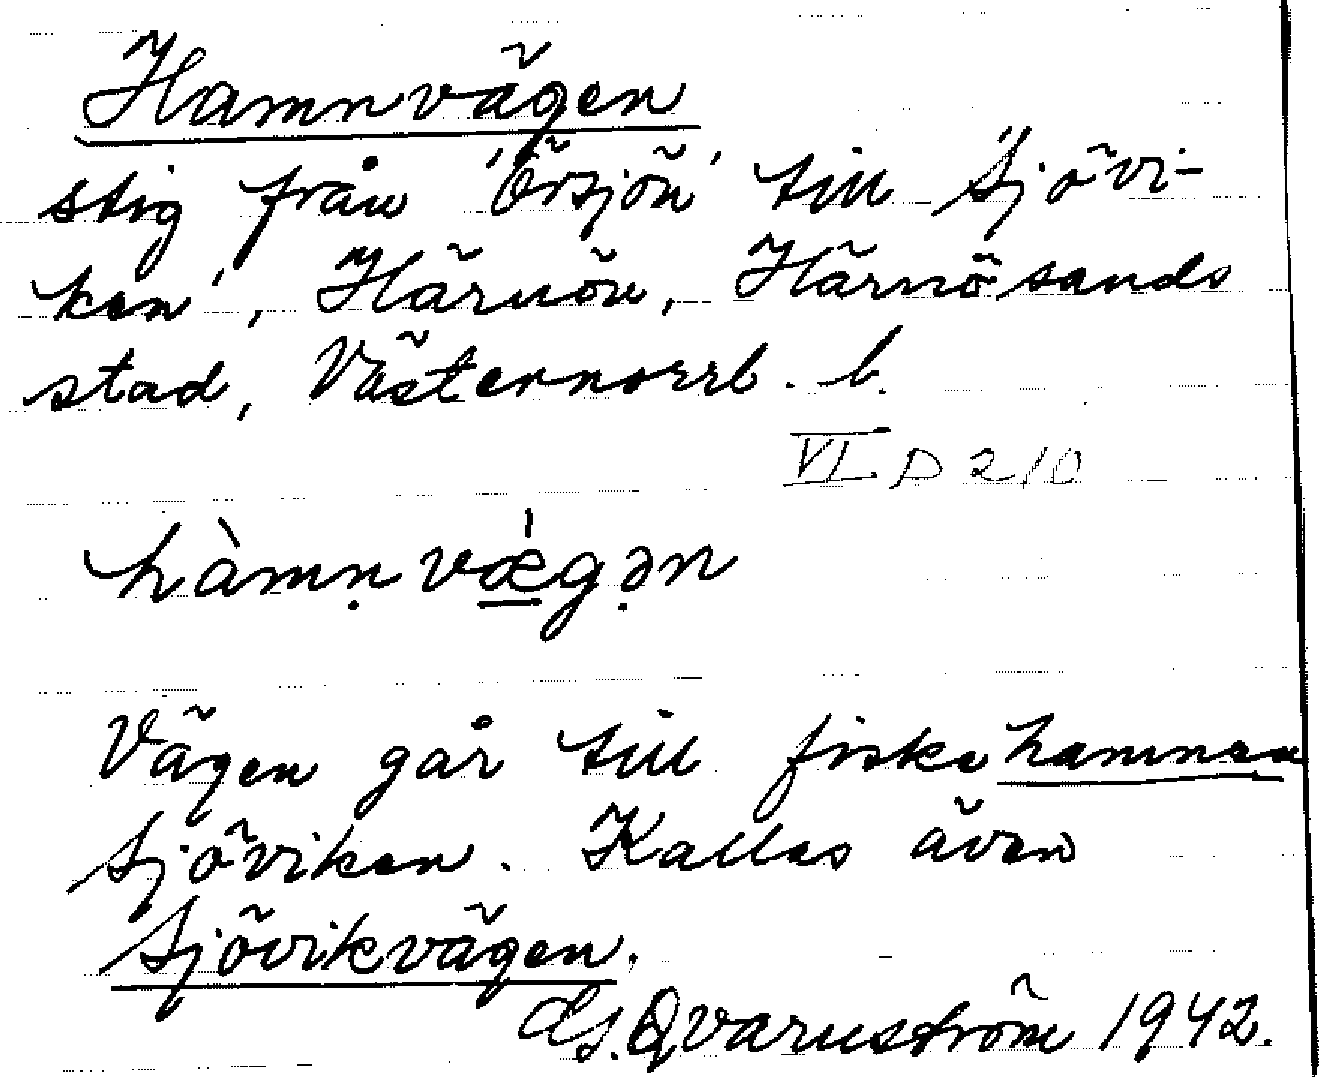 Hamnvägen
stig från 'Örsjön' till 'Sjövi-
ken', Härnön, Härnösands
stad, Västernorrl. l.
VI D 210
hàmṇ vǽ̲gə̣n
Vägen går till fiskehamnen
Sjöviken. Kallas även
Sjövikvägen.
Qvarnström 1942.